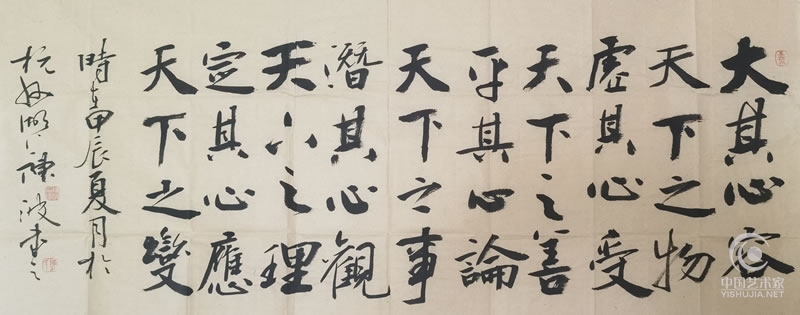 大其心容
天下之物
虛其心受
天下之善
平其心論
天下之事
潛其心觀
天下之理
定其心應
天下之變
時在甲辰夏月於
杭州湖上陳波書之
中国艺术家
YISHUJIA.NET